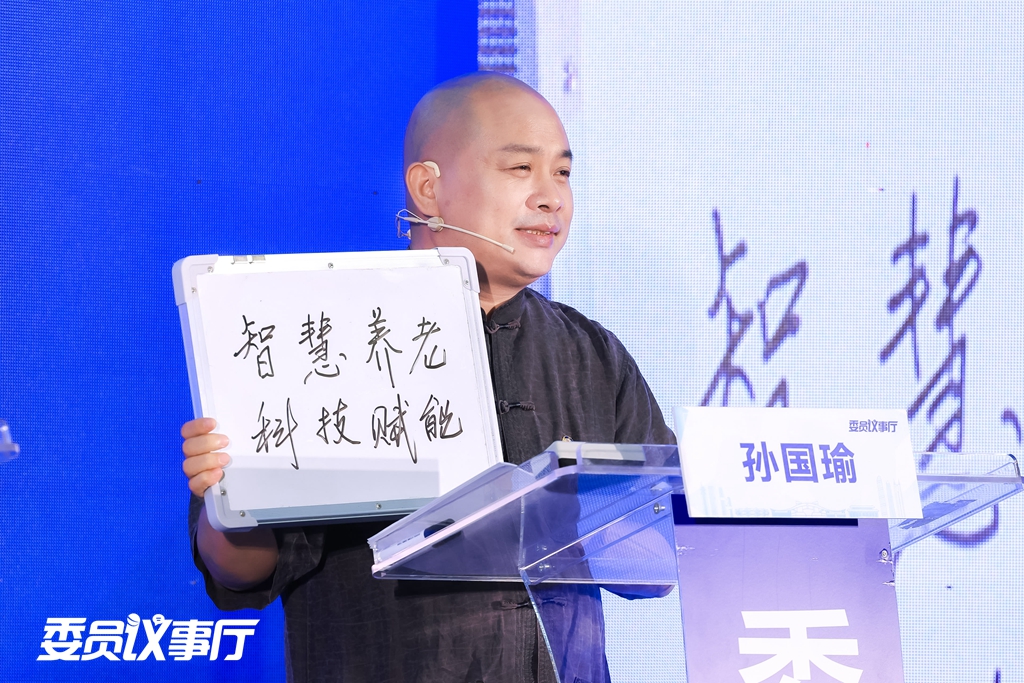 智慧养老
科技赋能
智慧
委员议事厅
孙国瑜
委
委员议事厅